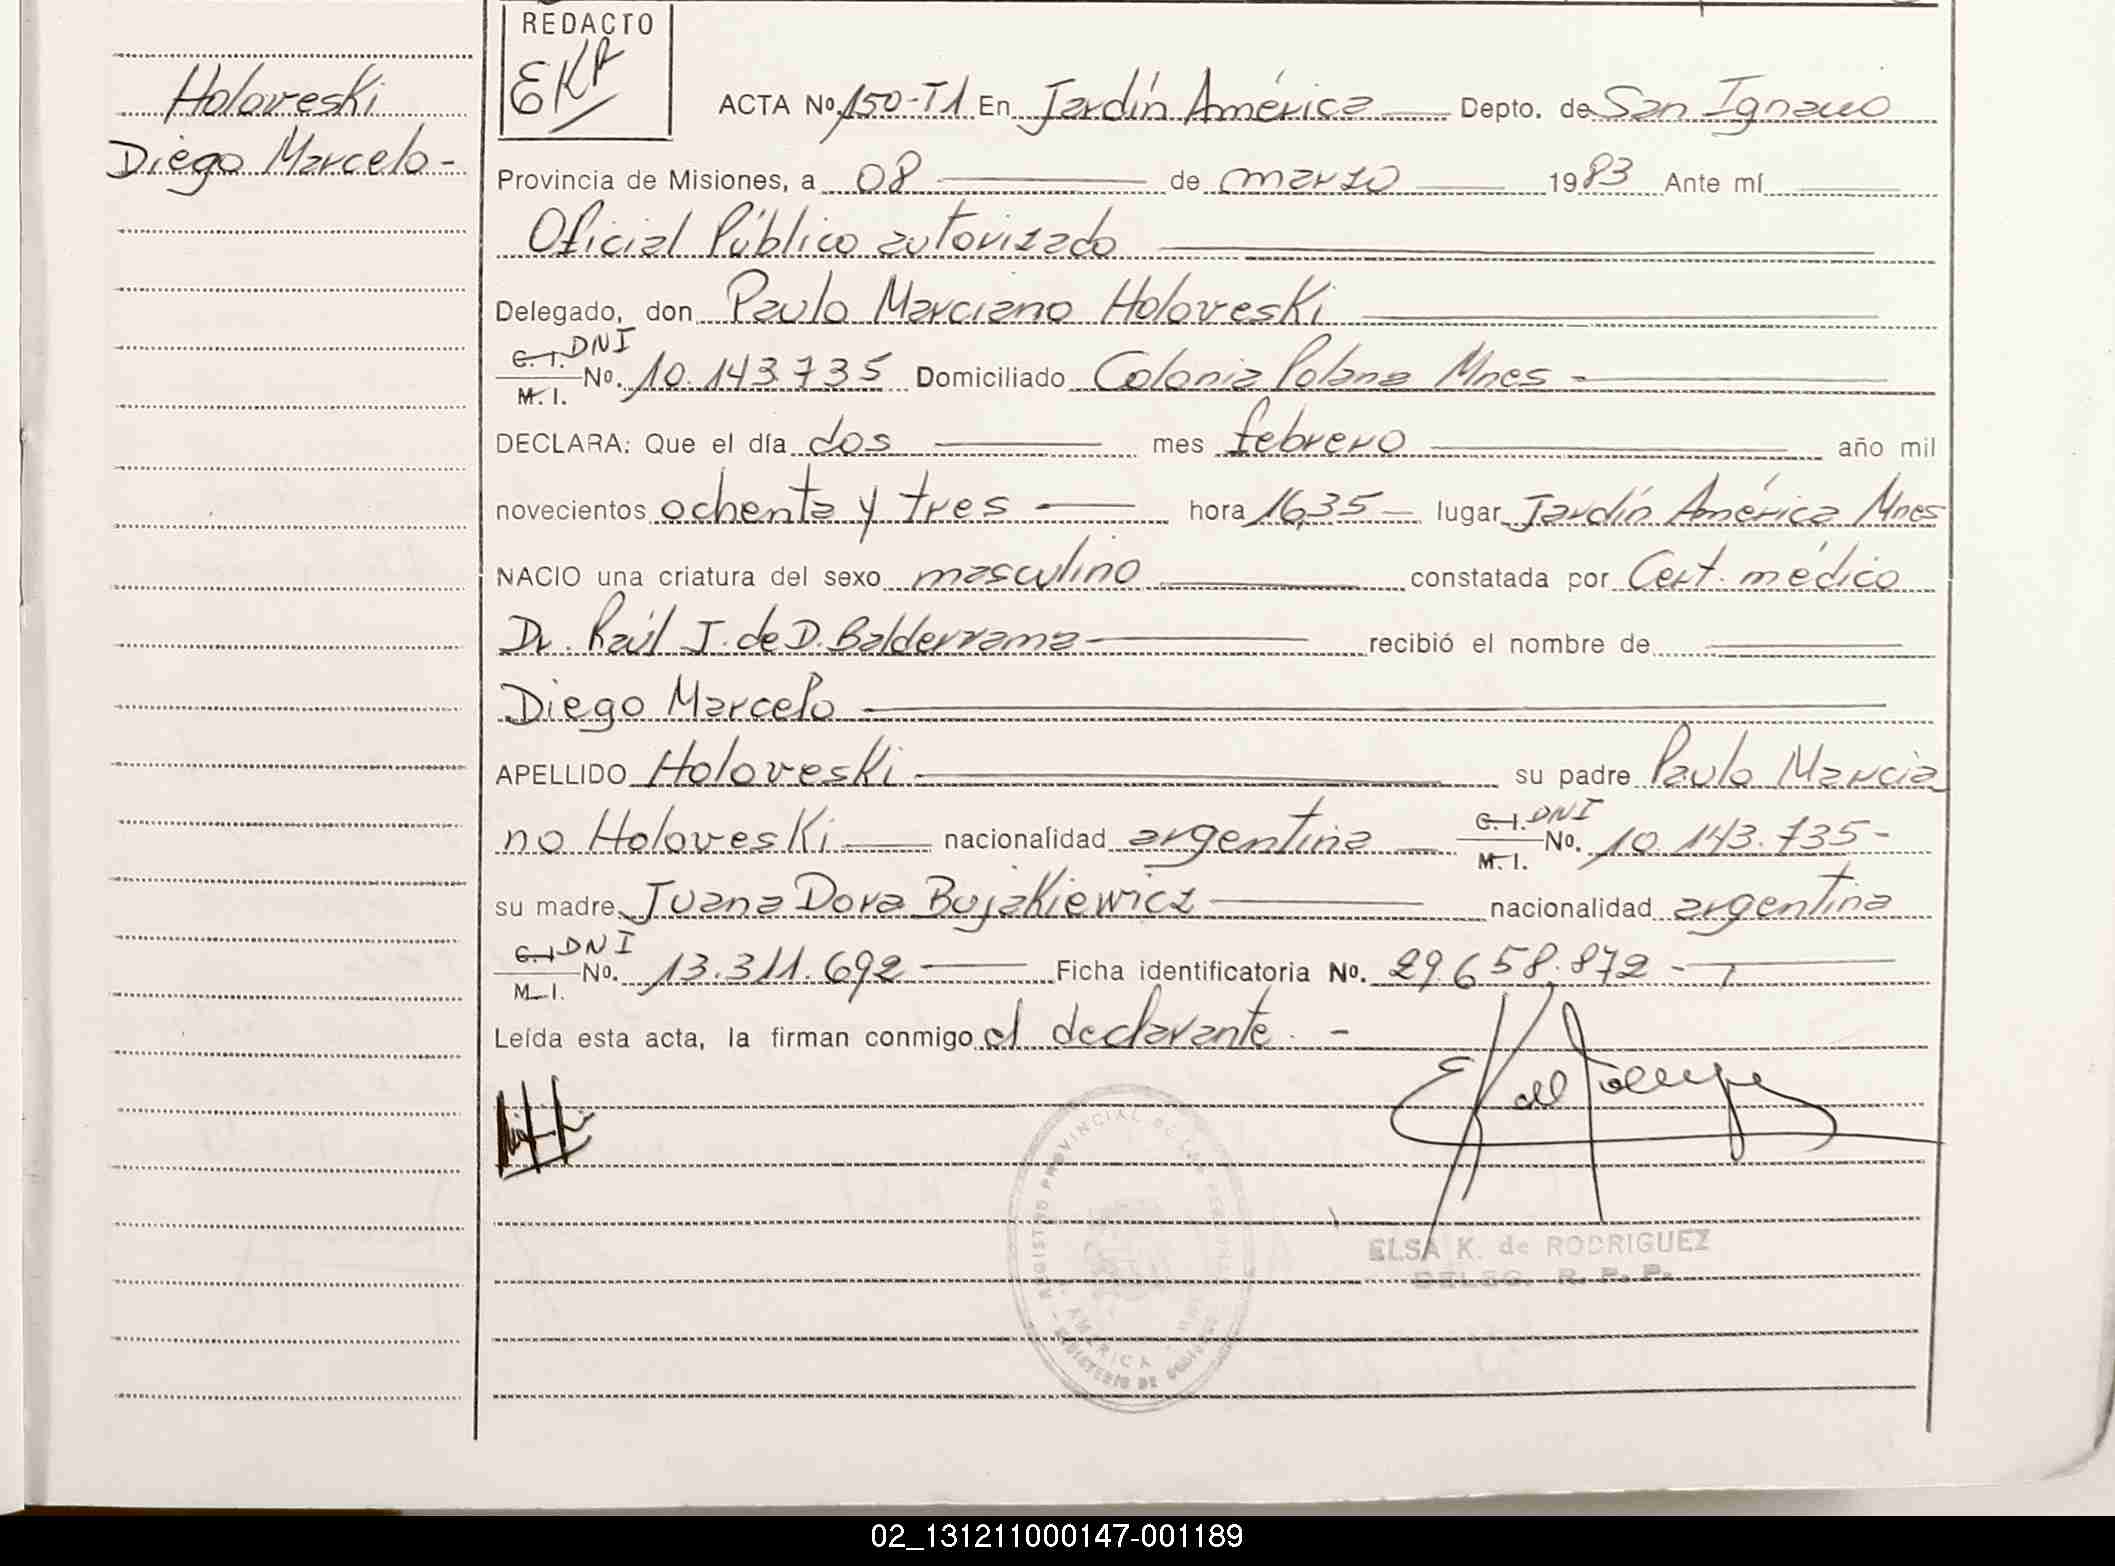 Holoveski
Diego Marcelo-
REDACTO
EKR
ACTA No. 150-T1 En Jardín América Depto. de San Ignacio
Provincia de Misiones, a 08 de marzo 1983 Ante mí
Oficial Público autorizado
Delegado, don Paulo Marciano Holoveski
C. I. DNI
M. I. No. 10.143.735 Domiciliado Colonia Polana Mnes -
DECLARA: Que el día dos mes febrero año mil
novecientos ochenta y tres hora 16,35 lugar Jardín América Mnes
NACIO una criatura del sexo masculino constatada por Cert. médico
Dr. Raúl J. de D. Balderrama recibió el nombre de
Diego Marcelo
APELLIDO Holoveski su padre Paulo Marcia
no Holoveski nacionalidad argentina C. I. DNI M. I. No. 10.143.735-
su madre Juana Dora Bujakiewicz nacionalidad argentina
C. I. DNI
M. I. No. 13.311.692 Ficha identificatoria No. 29.658.872 -
Leída esta acta, la firman conmigo el declarante. -
REGISTRO PROVINCIAL DE LAS PERSONAS
AMERICA
MINISTERIO DE GOBIERNO
ELSA K. de RODRIGUEZ
DELEG. R. P. P.
02_131211000147-001189